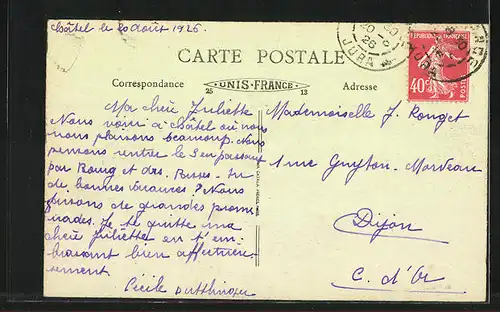 Châtel le 20 août 1926.
CARTE POSTALE
Correspondance
UNIS-FRANCE
25 13
Adresse
JURA
40c
POSTES
Ma chère Juliette
Nous voici à Châtel où nous
nous plaisons beaucoup. Nous
pensons rentrer le 3 en passant
par Bourg et des
de bonnes vacances ? Nous
faisons de grandes prome
nades. Je te quitte ma
chère Juliette en t'em
brassant bien affectueu
sement
Cécile
Mademoiselle J. Rouget
1 rue Guyton-Morveau
Dijon
C. d'Or